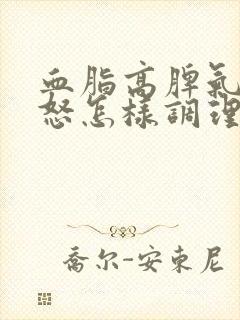 血脂高脾氣
怒怎樣調理
喬尔-安東尼